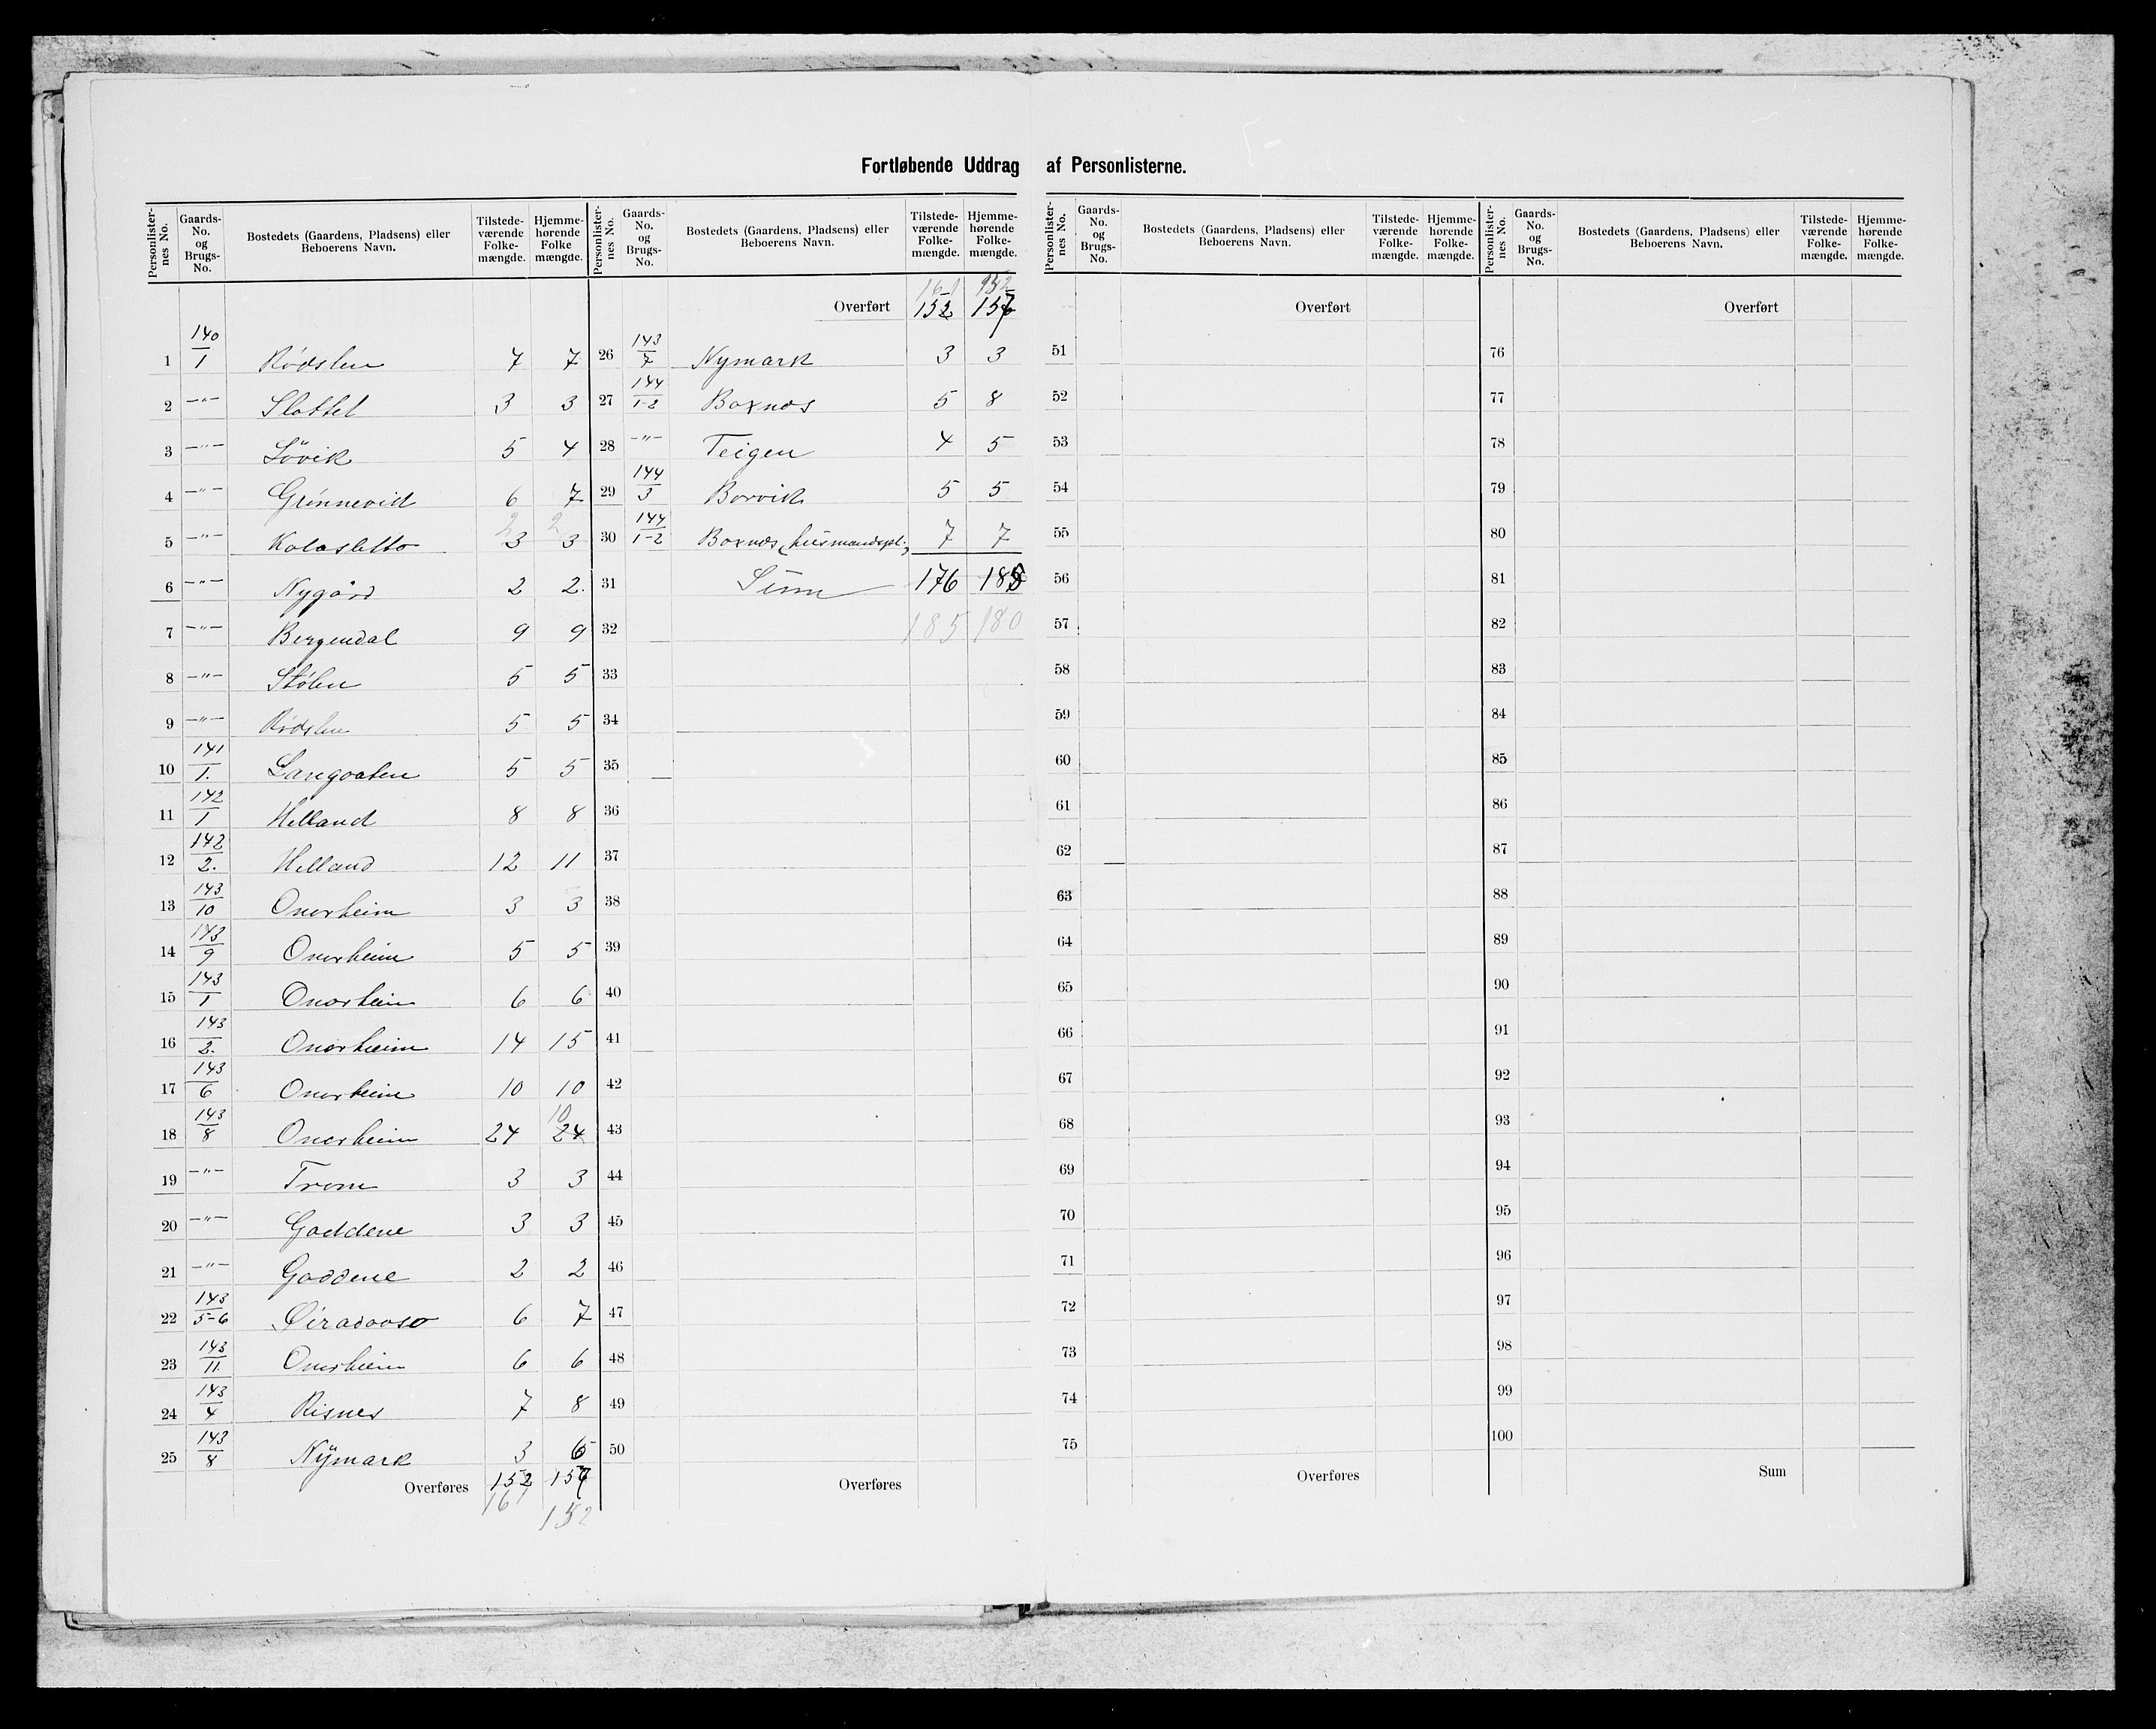 Fortløbende Uddrag af Personlisterne.
Personlister-nes No. Gaards-No. og Brugs-No. Bostedets (Gaardens, Pladsens) eller Beboerens Navn. Tilstede-værende Folke-mængde. Hjemme-hørende Folke mængde.
Personlister-nes No. Gaards-No. og Brugs-No. Bostedets (Gaardens, Pladsens) eller Beboerens Navn. Tilstede-værende Folke-mængde. Hjemme-hørende Folke-mængde.
Personlister-nes No. Gaards-No. og Brugs-No. Bostedets (Gaardens, Pladsens) eller Beboerens Navn. Tilstede-værende Folke-mængde. Hjemme-hørende Folke-mængde.
Personlister-nes No. Gaards-No. og Brugs-No. Bostedets (Gaardens, Pladsens) eller Beboerens Navn. Tilstede-værende Folke-mængde. Hjemme-hørende Folke-mængde.
1 140/1 Rødslen 7 7
2 -"- Slottet 3 3
3 -"- Løvik 5 4
4 -"- Grønnevid 6 7
5 -"- Kolasletto 3 3
2 2
6 -"- Nygård 2 2.
7 -"- Bergendal 9 9
8 -"- Stølen 5 5
9 -"- Rødslen 5 5
10 141/1. Langgoten 5 5
11 142/1 Helland 8 8
12 142/2. Helland 12 11
13 143/10 Onarheim 3 3
14 143/9 Onarheim 5 5
15 143/1 Onarheim 6 6
16 143/2. Onarheim 14 15
17 143/6 Onarheim 10 10
18 143/8 Onarheim 24 24
10
19 -"- Trom 3 3
20 -"- Gaddene 3 3
21 -"- Gaddene 2 2
22 143/5-6 6 7
23 143/11. Onarheim 6 6
24 143/4 Risnes 7 8
25 143/8 Nÿmark 3 6
Overføres 152 157
161 152
Overført 152 157
161 152
26 143/7 Nymark 3 3
27 144/1-2 Boxnes 5 8
28 -"- Teigen 4 5
29 144/3 Borvik 5 5
30 144/1-2 Boxnes (husmandspl.) 7 7
31 Sum 176 185
32 185 180
33
34
35
36
37
38
39
40
41
42
43
44
45
46
47
48
49
50
Overføres
Overført
51
52
53
54
55
56
57
58
59
60
61
62
63
64
65
66
67
68
69
70
71
72
73
74
75
Overføres
Overført
76
77
78
79
80
81
82
83
84
85
86
87
88
89
90
91
92
93
94
95
96
97
98
99
100
Sum